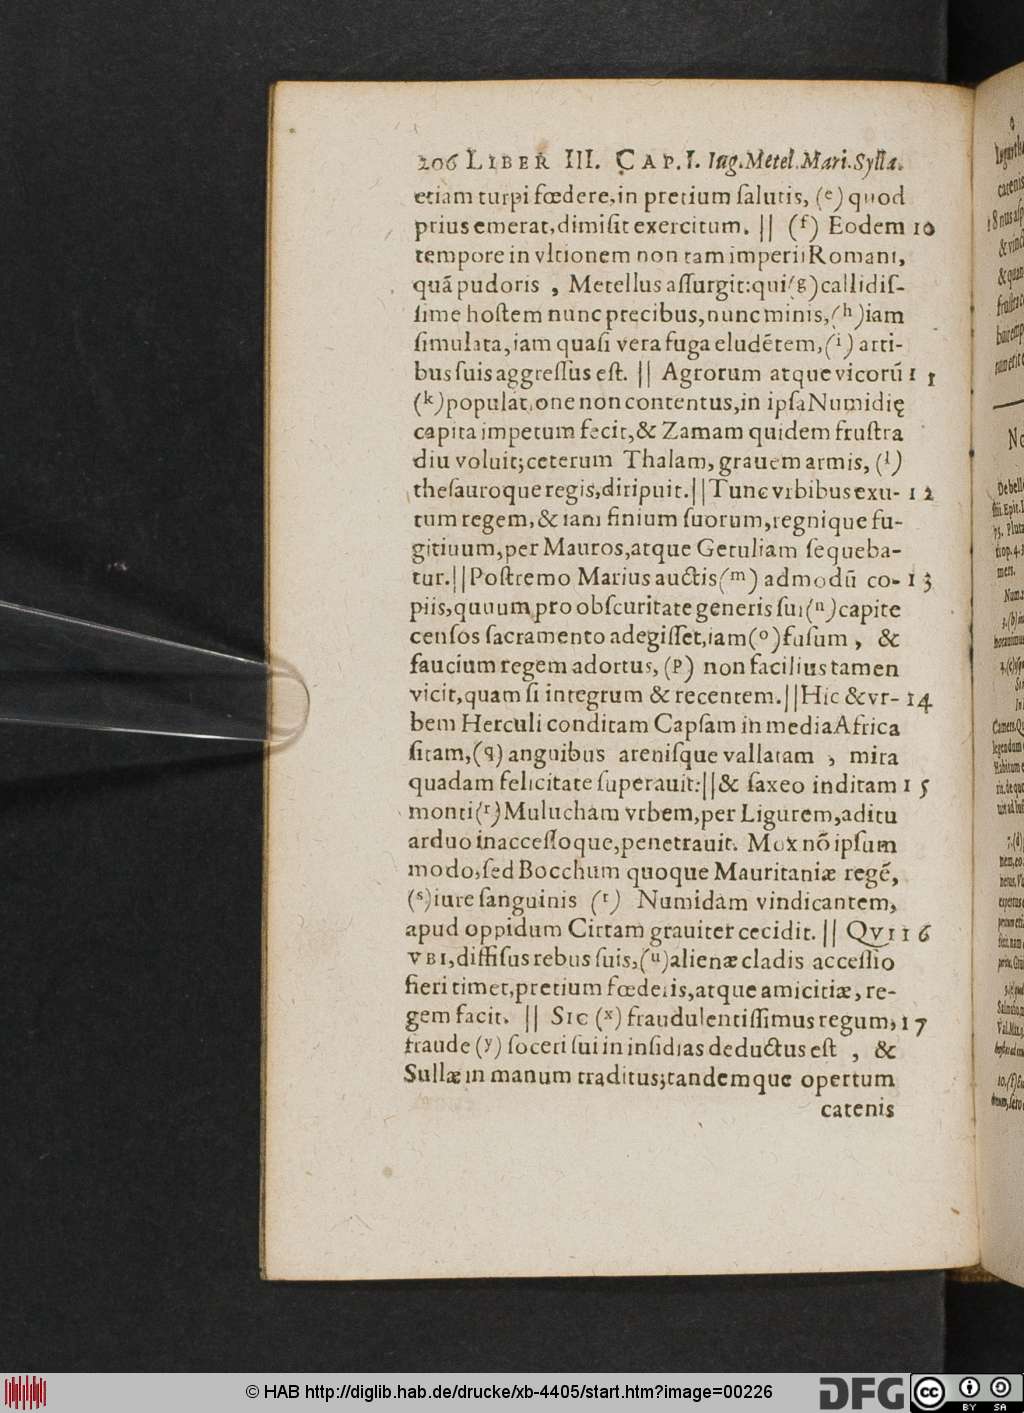 206 LIBER III. CAP. I. Iug. Metel. Mari. Sylla.
etiam turpi fœdere, in pretium ſalutis, (e) quod
prius emerat, dimiſit exercitum. || (f) Eodem 10
tempore in vltionem non tam imperii Romani,
quã pudoris , Metellus aſſurgit: qui (g) callidiſ-
ſime hoſtem nunc precibus, nunc minis, (h) iam
ſimulata, iam quaſi vera fuga eludẽtem, (i) arti-
bus ſuis aggreſſus eſt. || Agrorum atque vicorũ 11
(k) populatione non contentus, in ipſa Numidię
capita impetum fecit, & Zamam quidem fruſtra
diu voluit; ceterum Thalam, grauem armis, (l)
theſauroque regis, diripuit. || Tunc vrbibus exu- 12
tum regem, & iam finium ſuorum, regnique fu-
gitiuum, per Mauros, atque Getuliam ſequeba-
tur. || Poſtremo Marius auctis (m) admodũ co- 13
piis, quuum pro obſcuritate generis ſui (n) capite
cenſos ſacramento adegiſſet, iam (o) fuſum , &
ſaucium regem adortus, (p) non facilius tamen
vicit, quam ſi integrum & recentem. || Hic & vr- 14
bem Herculi conditam Capſam in media Africa
ſitam, (q) anguibus areniſque vallatam , mira
quadam felicitate ſuperauit: || & ſaxeo inditam 15
monti (r) Mulucham vrbem, per Ligurem, aditu
arduo inacceſſoque, penetrauit. Mox nõ ipſum
modo, ſed Bocchum quoque Mauritaniæ regẽ,
(s) iure ſanguinis (t) Numidam vindicantem,
apud oppidum Cirtam grauiter cecidit. || QVI 16
VBI, diffiſus rebus ſuis, (u) alienæ cladis acceſſio
fieri timet, pretium fœderis, atque amicitiæ, re-
gem facit. || SIC (x) fraudulentiſſimus regum, 17
fraude (y) ſoceri ſui in inſidias deductus eſt , &
Sullæ in manum traditus; tandemque opertum
catenis
© HAB http://diglib.hab.de/drucke/xb-4405/start.htm?image=00226
DFG
cc BY SA